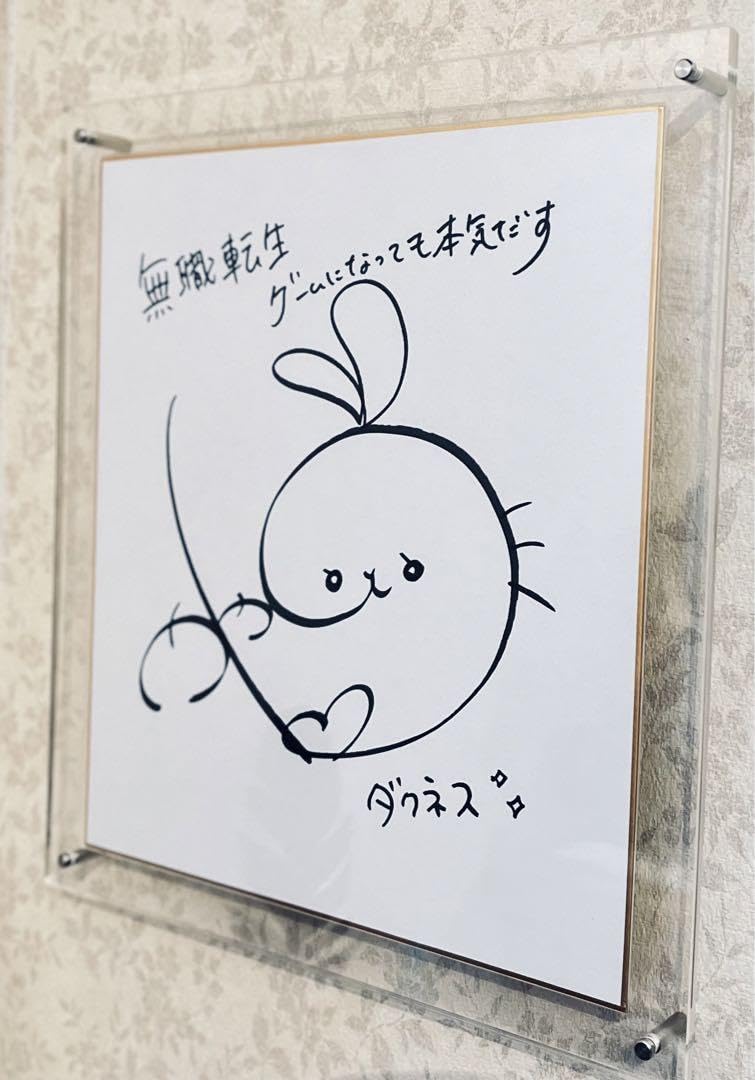 無職転生
ゲームになっても本気だす
ダクネス